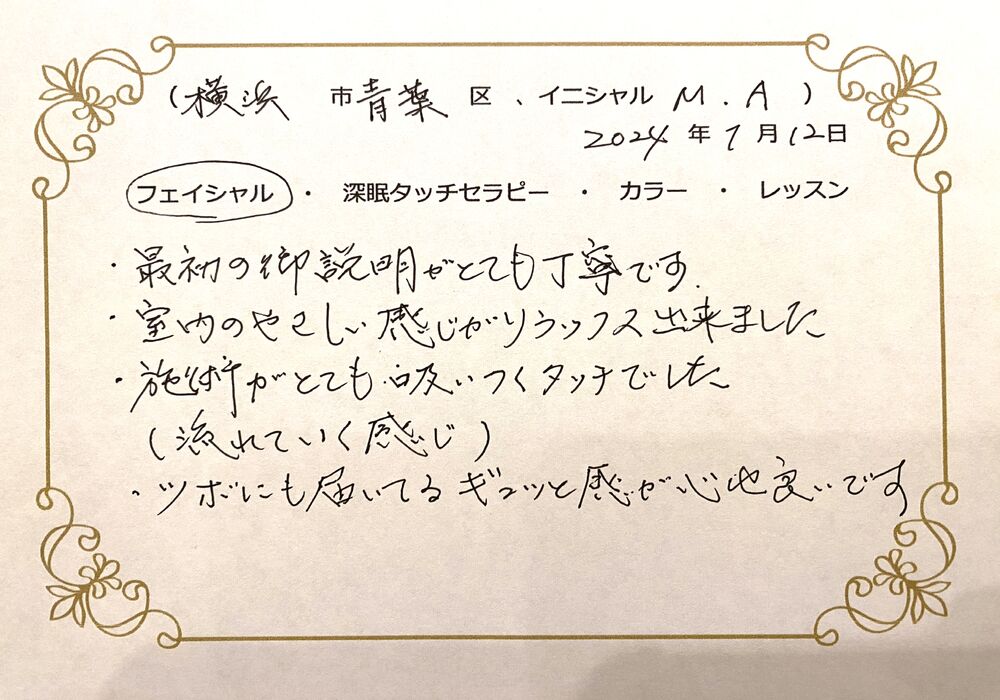 (横浜 市 青葉 区 、イニシャル M . A )
2024 年 7 月 12 日
フェイシャル ・ 深眠タッチセラピー ・ カラー ・ レッスン
・最初の御説明がとても丁寧です.
・室内のやさしい感じがリラックス出来ました
・施術がとても吸いつくタッチでした
(流れていく感じ)
・ツボにも届いてるギュッと感が心地良いです